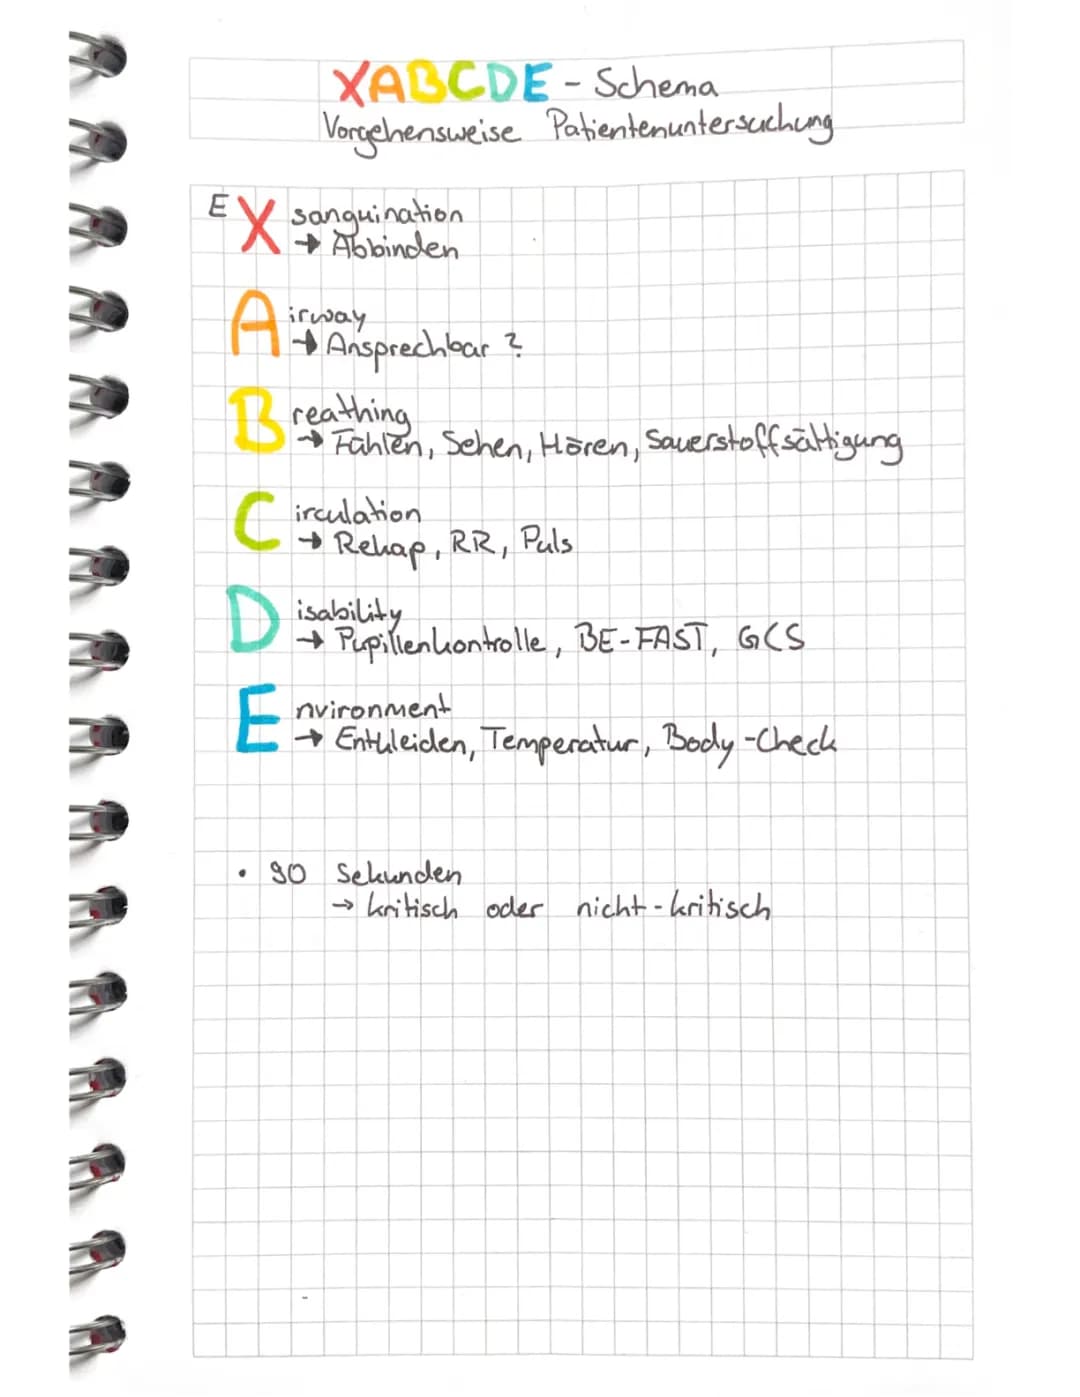 XABCDE - Schema
Vorgehensweise Patientenuntersuchung
EX sanguination
→ Abbinden
Airway
→ Ansprechbar ?
Breathing
→ Fühlen, Sehen, Hören, Sauerstoffsättigung
Circulation
→ Rekap, RR, Puls
Disability
→ Pupillenkontrolle, BE-FAST, GCS
Environment
→ Entkleiden, Temperatur, Body-Check
• 90 Sekunden
→ kritisch oder nicht-kritisch